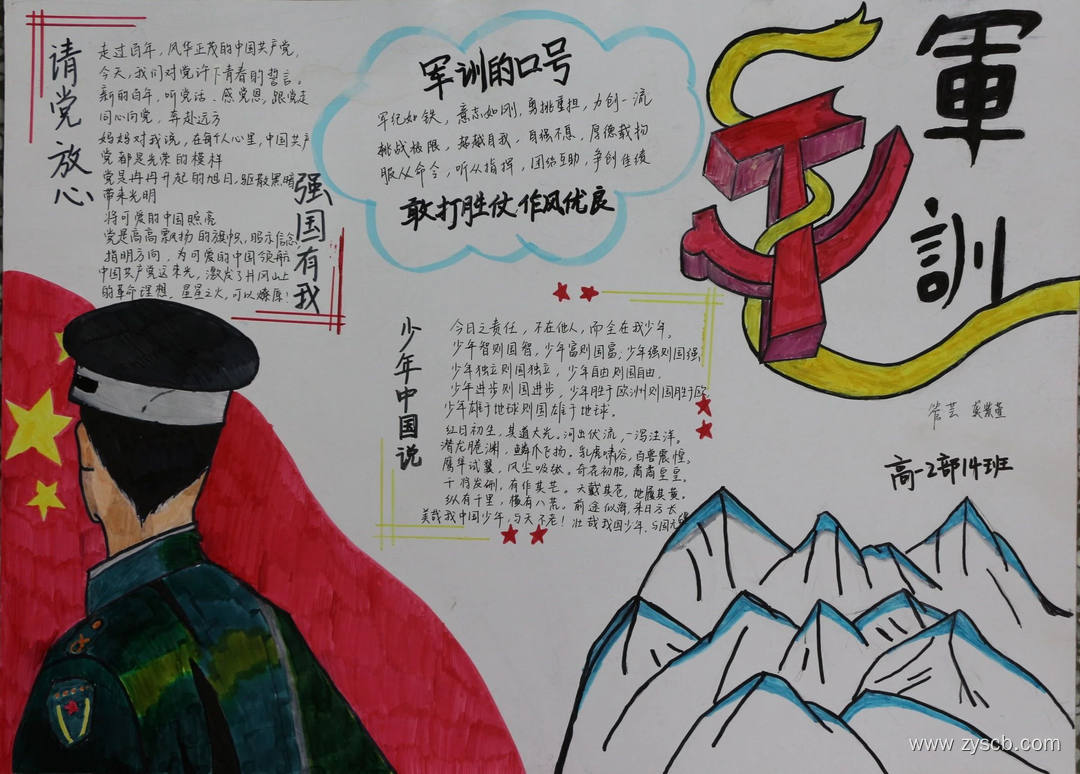 请党放心
走过百年，风华正茂的中国共产党，
今天，我们对党许下青春的誓言。
新的百年，听党话、感党恩，跟党走
同心向党，奔赴远方
妈妈对我说，在每个人心里，中国共产
党都是光荣的模样
党是冉冉升起的旭日，驱散黑暗
带来光明
将可爱的中国照亮
党是高高飘扬的旗帜，昭示信念
指明方向，为可爱的中国领航
中国共产党远来光，激发了井冈山上
的革命理想，星星之火，可以燎原！
强国有我
军训的口号
军纪如铁，意志如刚，勇挑重担，力创一流
挑战极限，超越自我，自强不息，厚德载物
服从命令，听从指挥，团结互助，争创佳绩
敢打胜仗 作风优良
軍訓
少年中国说
今日之责任，不在他人，而全在我少年。
少年智则国智，少年富则国富，少年强则国强
少年独立则国独立，少年自由则国自由。
少年进步则国进步，少年胜于欧洲则国胜于欧
少年雄于地球则国雄于地球。
红日初生，其道大光。河出伏流，一泻汪洋。
潜龙腾渊，鳞爪飞扬。乳虎啸谷，百兽震惶。
鹰隼试翼，风尘吸张。奇花初胎，矞矞皇皇。
干将发硎，有作其芒。天戴其苍，地履其黄。
纵有千里，横有八荒。前途似海，来日方长
美哉我中国少年，与天不老！壮哉我国少年，与国无疆
高一2部14班
www.zyscb.com